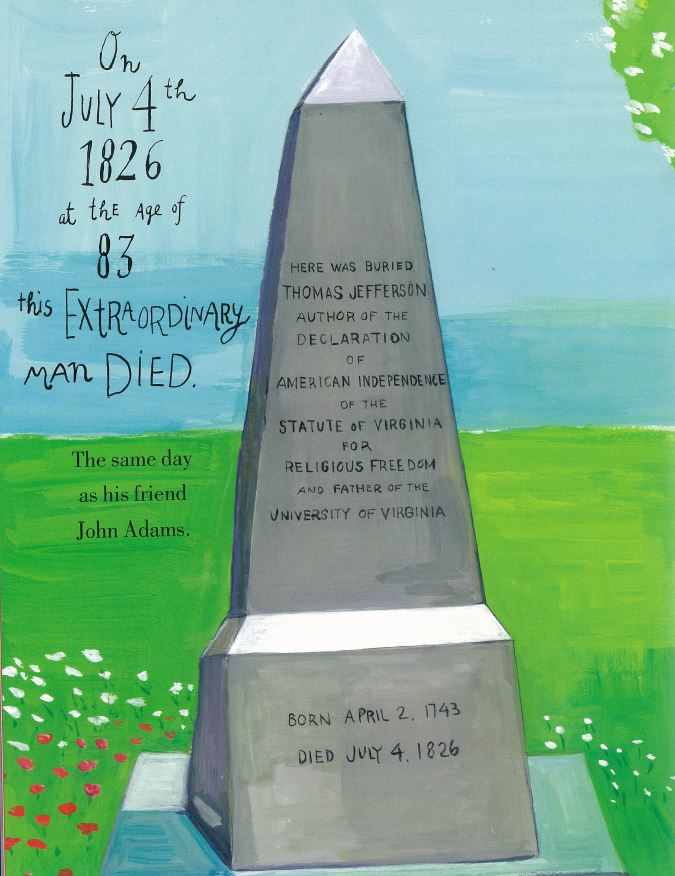 On
JULY 4th
1826
at thE AgE of
83
this ExtRAORDINARY
MAN DiED.
The same day
as his friend
John Adams.
HERE WAS BURIED
THOMAS JEFFERSON
AUTHOR OF THE
DECLARATION
OF
AMERICAN INDEPENDENCE
OF THE
STATUTE OF VIRGINIA
FOR
RELIGIOUS FREEDOM
AND FATHER OF THE
UNIVERSITY OF VIRGINIA
BORN APRIL 2, 1743
DIED JULY 4, 1826